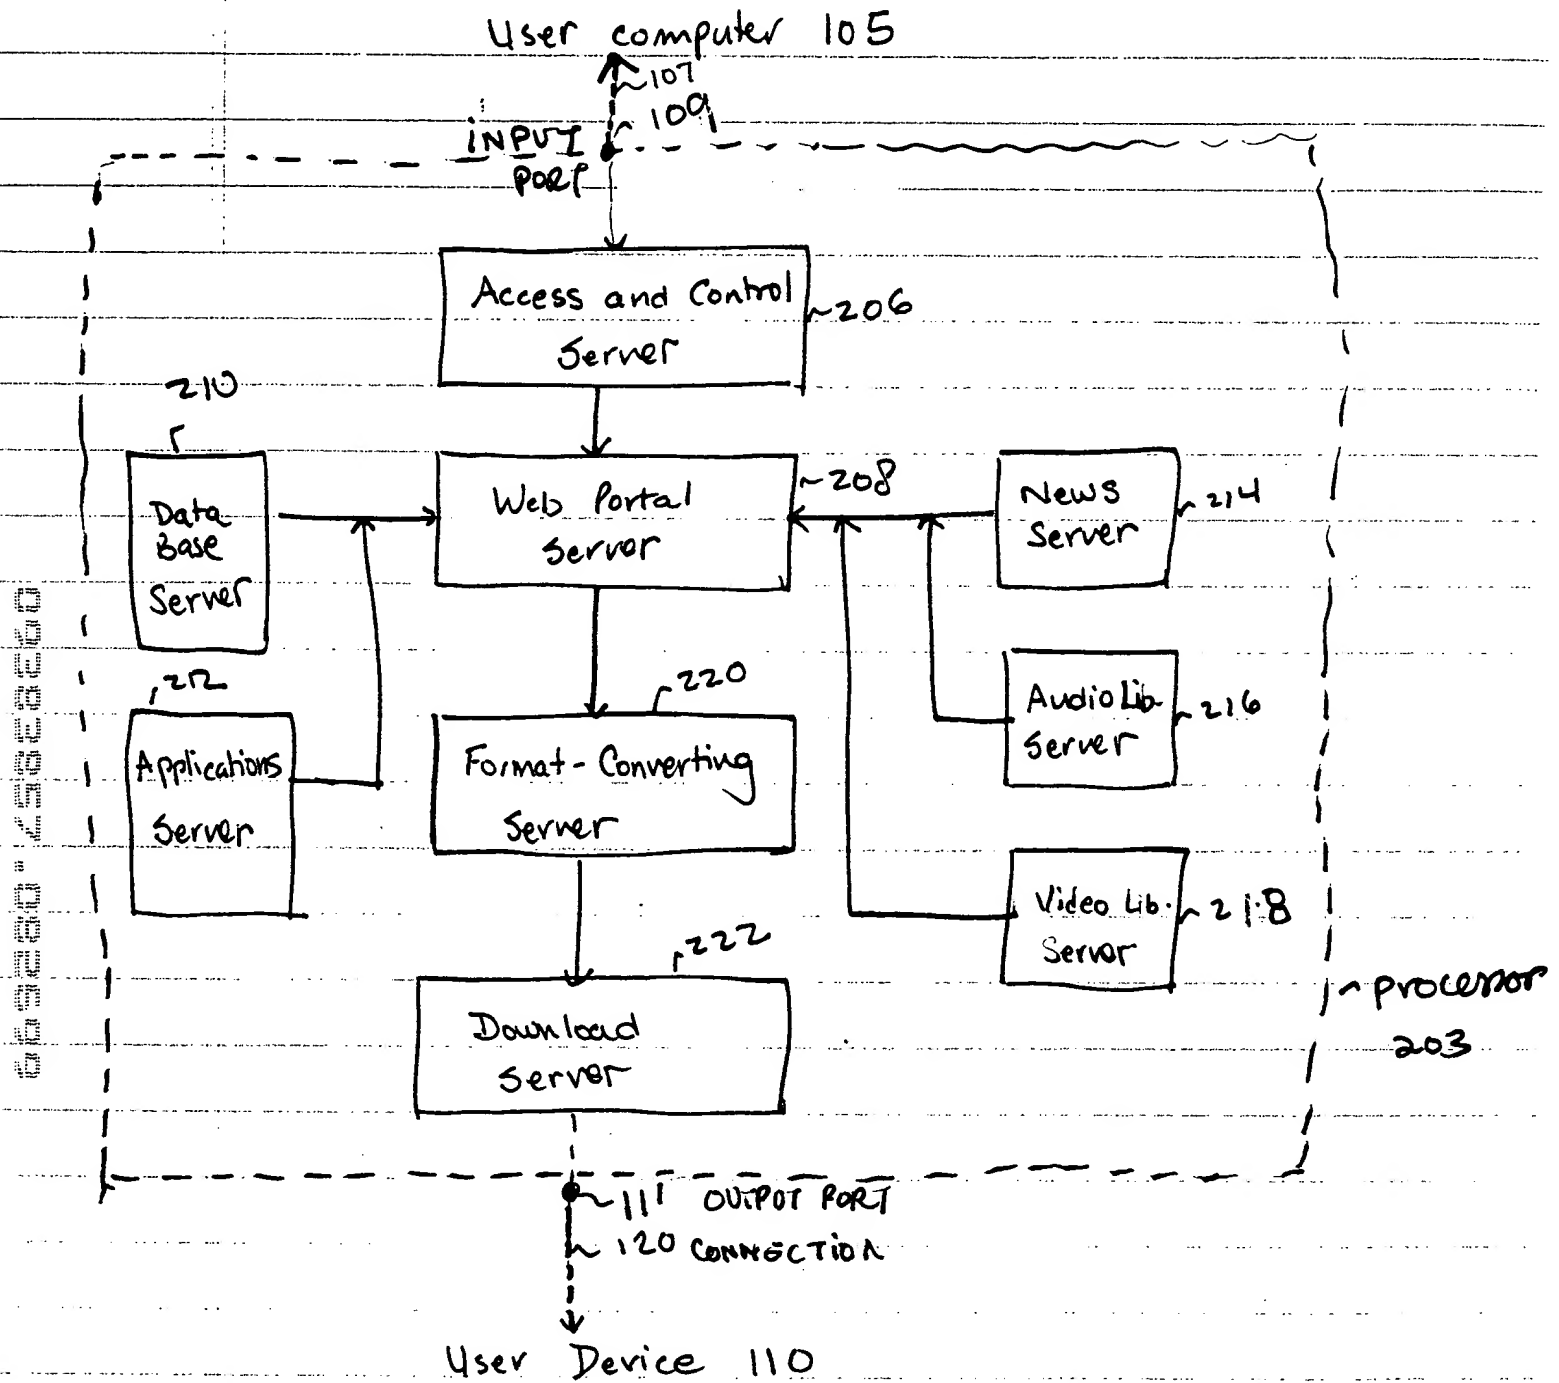 User computer 105
107
109
INPUT
PORT
Access and Control
Server
206
210
Data
Base
Server
Web Portal
Server
208
News
Server
214
212
Applications
Server
220
Format-Converting
Server
Audio Lib
Server
216
Video Lib.
Server
218
222
Download
Server
processor
203
111 OUTPUT PORT
120 CONNECTION
User Device 110